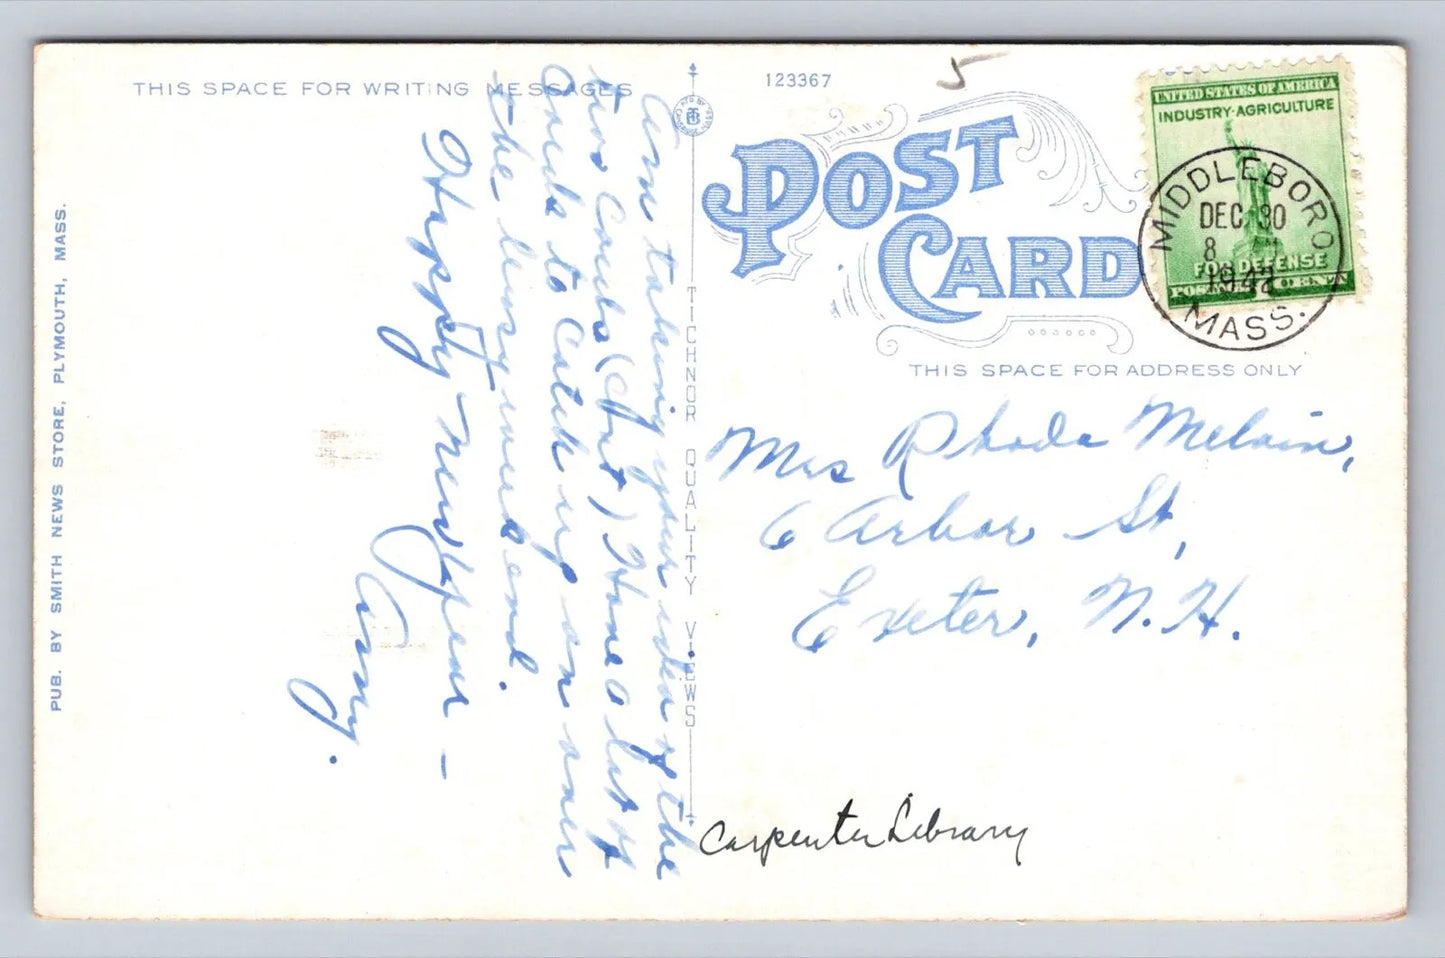 THIS SPACE FOR WRITING MESSAGES
Am taking your idea of the
two Cards (Cent) Have a lot of
Cards to Catch up on over
the long week end.
Happy New Year –
Amy.
PUB. BY SMITH NEWS STORE, PLYMOUTH, MASS.
TICHNOR QUALITY VIEWS
123367
5
POST
CARD
THIS SPACE FOR ADDRESS ONLY
UNITED STATES OF AMERICA
INDUSTRY·AGRICULTURE
FOR DEFENSE
MIDDLEBORO
DEC 30
8
MASS.
Mrs Rhoda Melvin,
6 Arbor St,
Exeter, N.H.
Carpenter Library